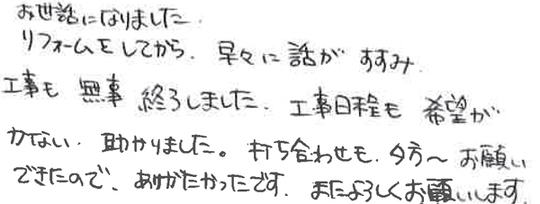 お世話になりました.
リフォームをしてから. 早々に話がすすみ.
工事も 無事 終ろしました. 工事日程も 希望が
かない. 助かりました。打ち合わせも. 夕方〜 お願い
できたので、ありがたかったです. またよろしくお願いします.